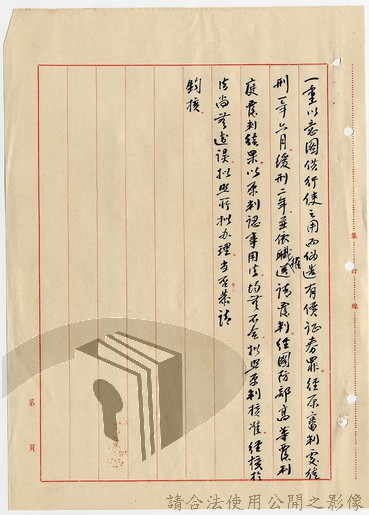 一重以意圖供行使之用而偽造有價證券罪經原審判處徒
刑一年六月緩刑二年並依職權送請覆判經國防部高等覆判
庭覆判結果以原判認事用法均無不合擬照原判核准經核於
法尚無違誤擬照所擬办理当否恭請
鈞核
裝訂線
第 頁
請合法使用公開之影像